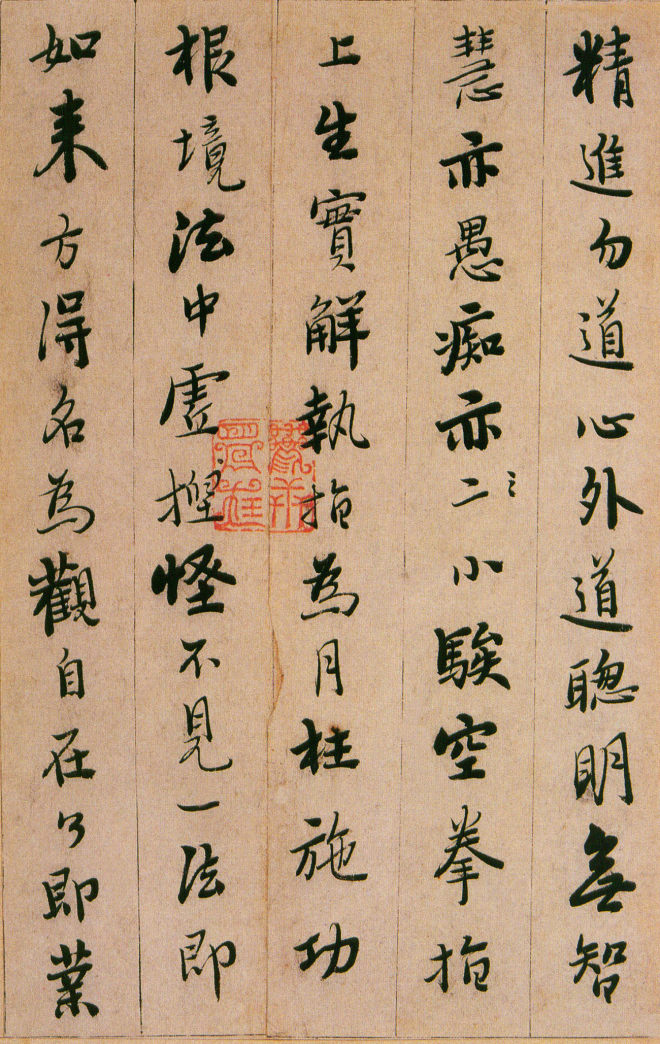 精進勿道心外道聰明無智
慧亦愚痴亦二小騃空拳指
上生實解執指為月柱施功
根境法中虛捏怪不見一法即
如来方得名為觀自在了即業